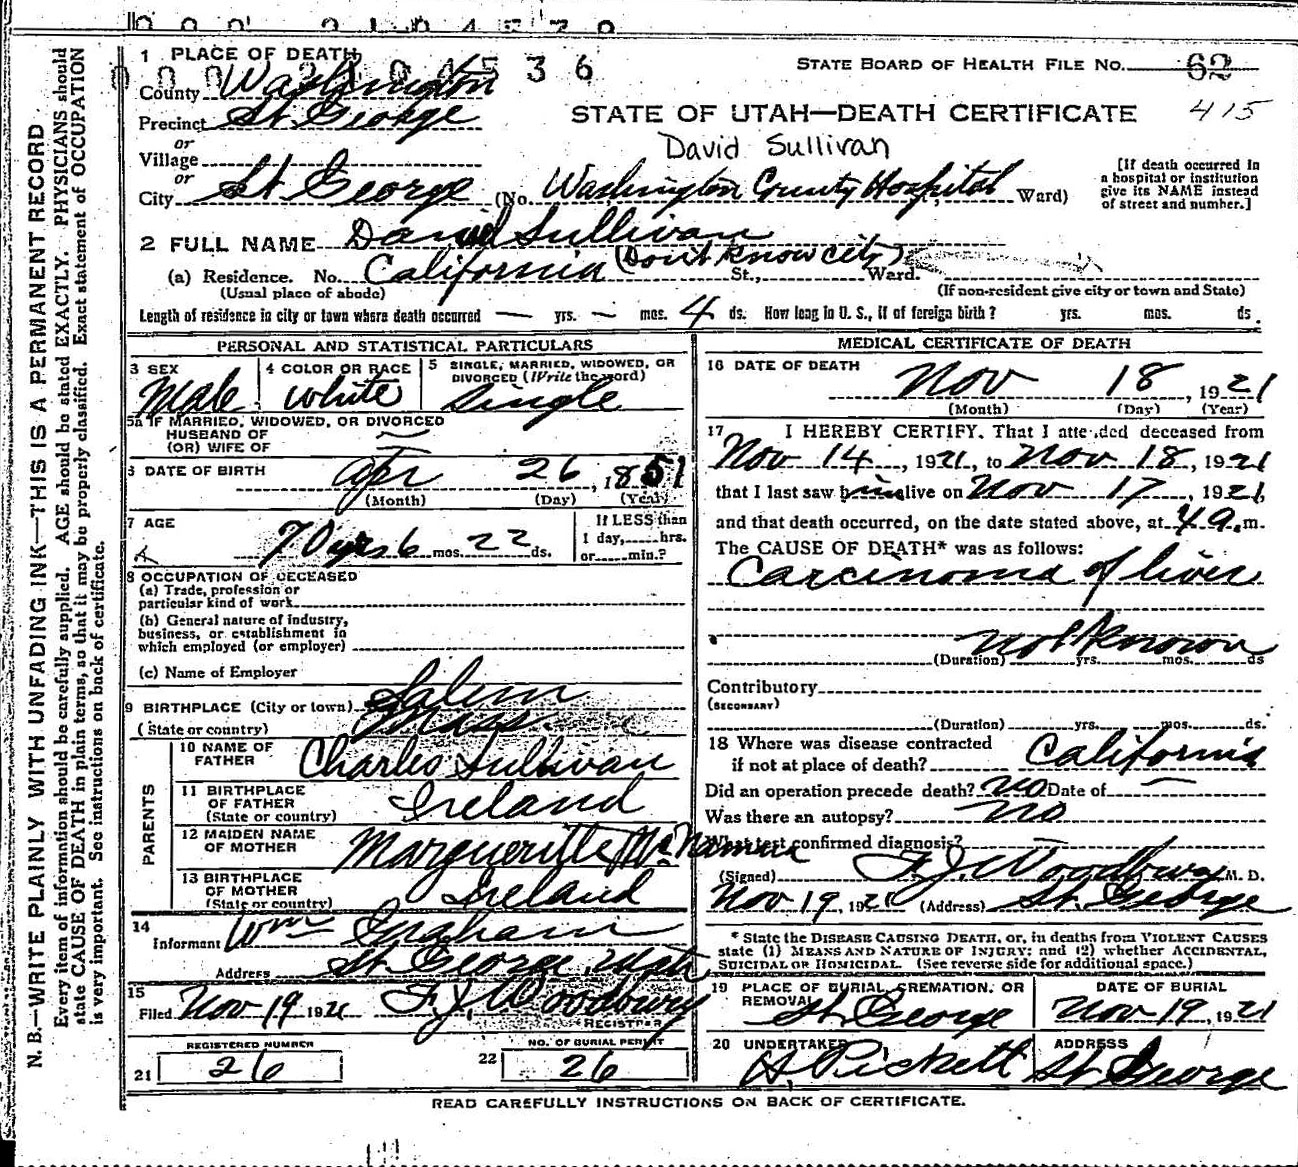 1 PLACE OF DEATH
County Washington
STATE BOARD OF HEALTH FILE NO. 62
STATE OF UTAH—DEATH CERTIFICATE 415
Precinct St. George
David Sullivan
or
Village
or
City St George (No. Washington County Hospital, Ward)
[If death occurred in
a hospital or institution
give its NAME instead
of street and number.]
2 FULL NAME David Sullivan
(a) Residence. No. California (Don't know city) St., Ward.
(Usual place of abode) (If non-resident give city or town and State)
Length of residence in city or town where death occurred — yrs. — mos. 4 ds. How long in U. S., if of foreign birth? yrs. mos. ds.
PERSONAL AND STATISTICAL PARTICULARS
3 SEX Male
4 COLOR OR RACE White
5 SINGLE, MARRIED, WIDOWED, OR
DIVORCED (Write the word) Single
5a IF MARRIED, WIDOWED, OR DIVORCED
HUSBAND OF
(OR) WIFE OF —
6 DATE OF BIRTH Apr 26, 1851
(Month) (Day) (Year)
7 AGE 70 yrs 6 mos. 22 ds.
If LESS than
1 day, hrs.
or min.?
8 OCCUPATION OF DECEASED
(a) Trade, profession or
particular kind of work
(b) General nature of industry,
business, or establishment in
which employed (or employer)
(c) Name of Employer
9 BIRTHPLACE (City or town) Salem
(State or country) Mass.
PARENTS
10 NAME OF
FATHER Charles Sullivan
11 BIRTHPLACE
OF FATHER
(State or country) Ireland
12 MAIDEN NAME
OF MOTHER Margueritte McNamara
13 BIRTHPLACE
OF MOTHER
(State or country) Ireland
14
Informant Wm Graham
Address St George, Utah
15
Filed Nov 19 1921 F. J. Woodbury
REGISTRAR
REGISTERED NUMBER
21 26
NO. OF BURIAL PERMIT
22 26
MEDICAL CERTIFICATE OF DEATH
16 DATE OF DEATH
Nov 18, 1921
(Month) (Day) (Year)
17 I HEREBY CERTIFY, That I attended deceased from
Nov 14, 1921, to Nov 18, 1921
that I last saw him alive on Nov 17, 1921,
and that death occurred, on the date stated above, at 4 a.m.
The CAUSE OF DEATH* was as follows:
Carcinoma of liver
not known
(Duration) yrs. mos. ds
Contributory
(SECONDARY)
(Duration) yrs. mos. ds.
18 Where was disease contracted
if not at place of death? California
Did an operation precede death? no Date of —
Was there an autopsy? no
What test confirmed diagnosis? —
(Signed) F. J. Woodbury M. D.
Nov 19, 1921 (Address) St. George
* State the DISEASE CAUSING DEATH, or, in deaths from VIOLENT CAUSES
state (1) MEANS AND NATURE OF INJURY; and (2) whether ACCIDENTAL,
SUICIDAL OR HOMICIDAL. (See reverse side for additional space.)
19 PLACE OF BURIAL, CREMATION, OR
REMOVAL St. George
DATE OF BURIAL
Nov 19, 1921
20 UNDERTAKER
A. Pickett
ADDRESS
St George
READ CAREFULLY INSTRUCTIONS ON BACK OF CERTIFICATE.
N. B.—WRITE PLAINLY WITH UNFADING INK—THIS IS A PERMANENT RECORD
Every item of information should be carefully supplied. AGE should be stated EXACTLY. PHYSICIANS should
state CAUSE OF DEATH in plain terms, so that it may be properly classified. Exact statement of OCCUPATION
is very important. See instructions on back of certificate.